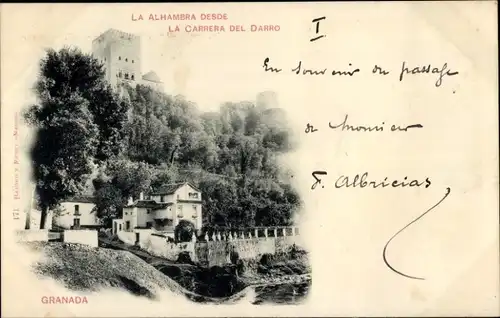 LA ALHAMBRA DESDE
LA CARRERA DEL DARRO
I
En souvenir du passage
de Monsier
F. Albricias
171
GRANADA